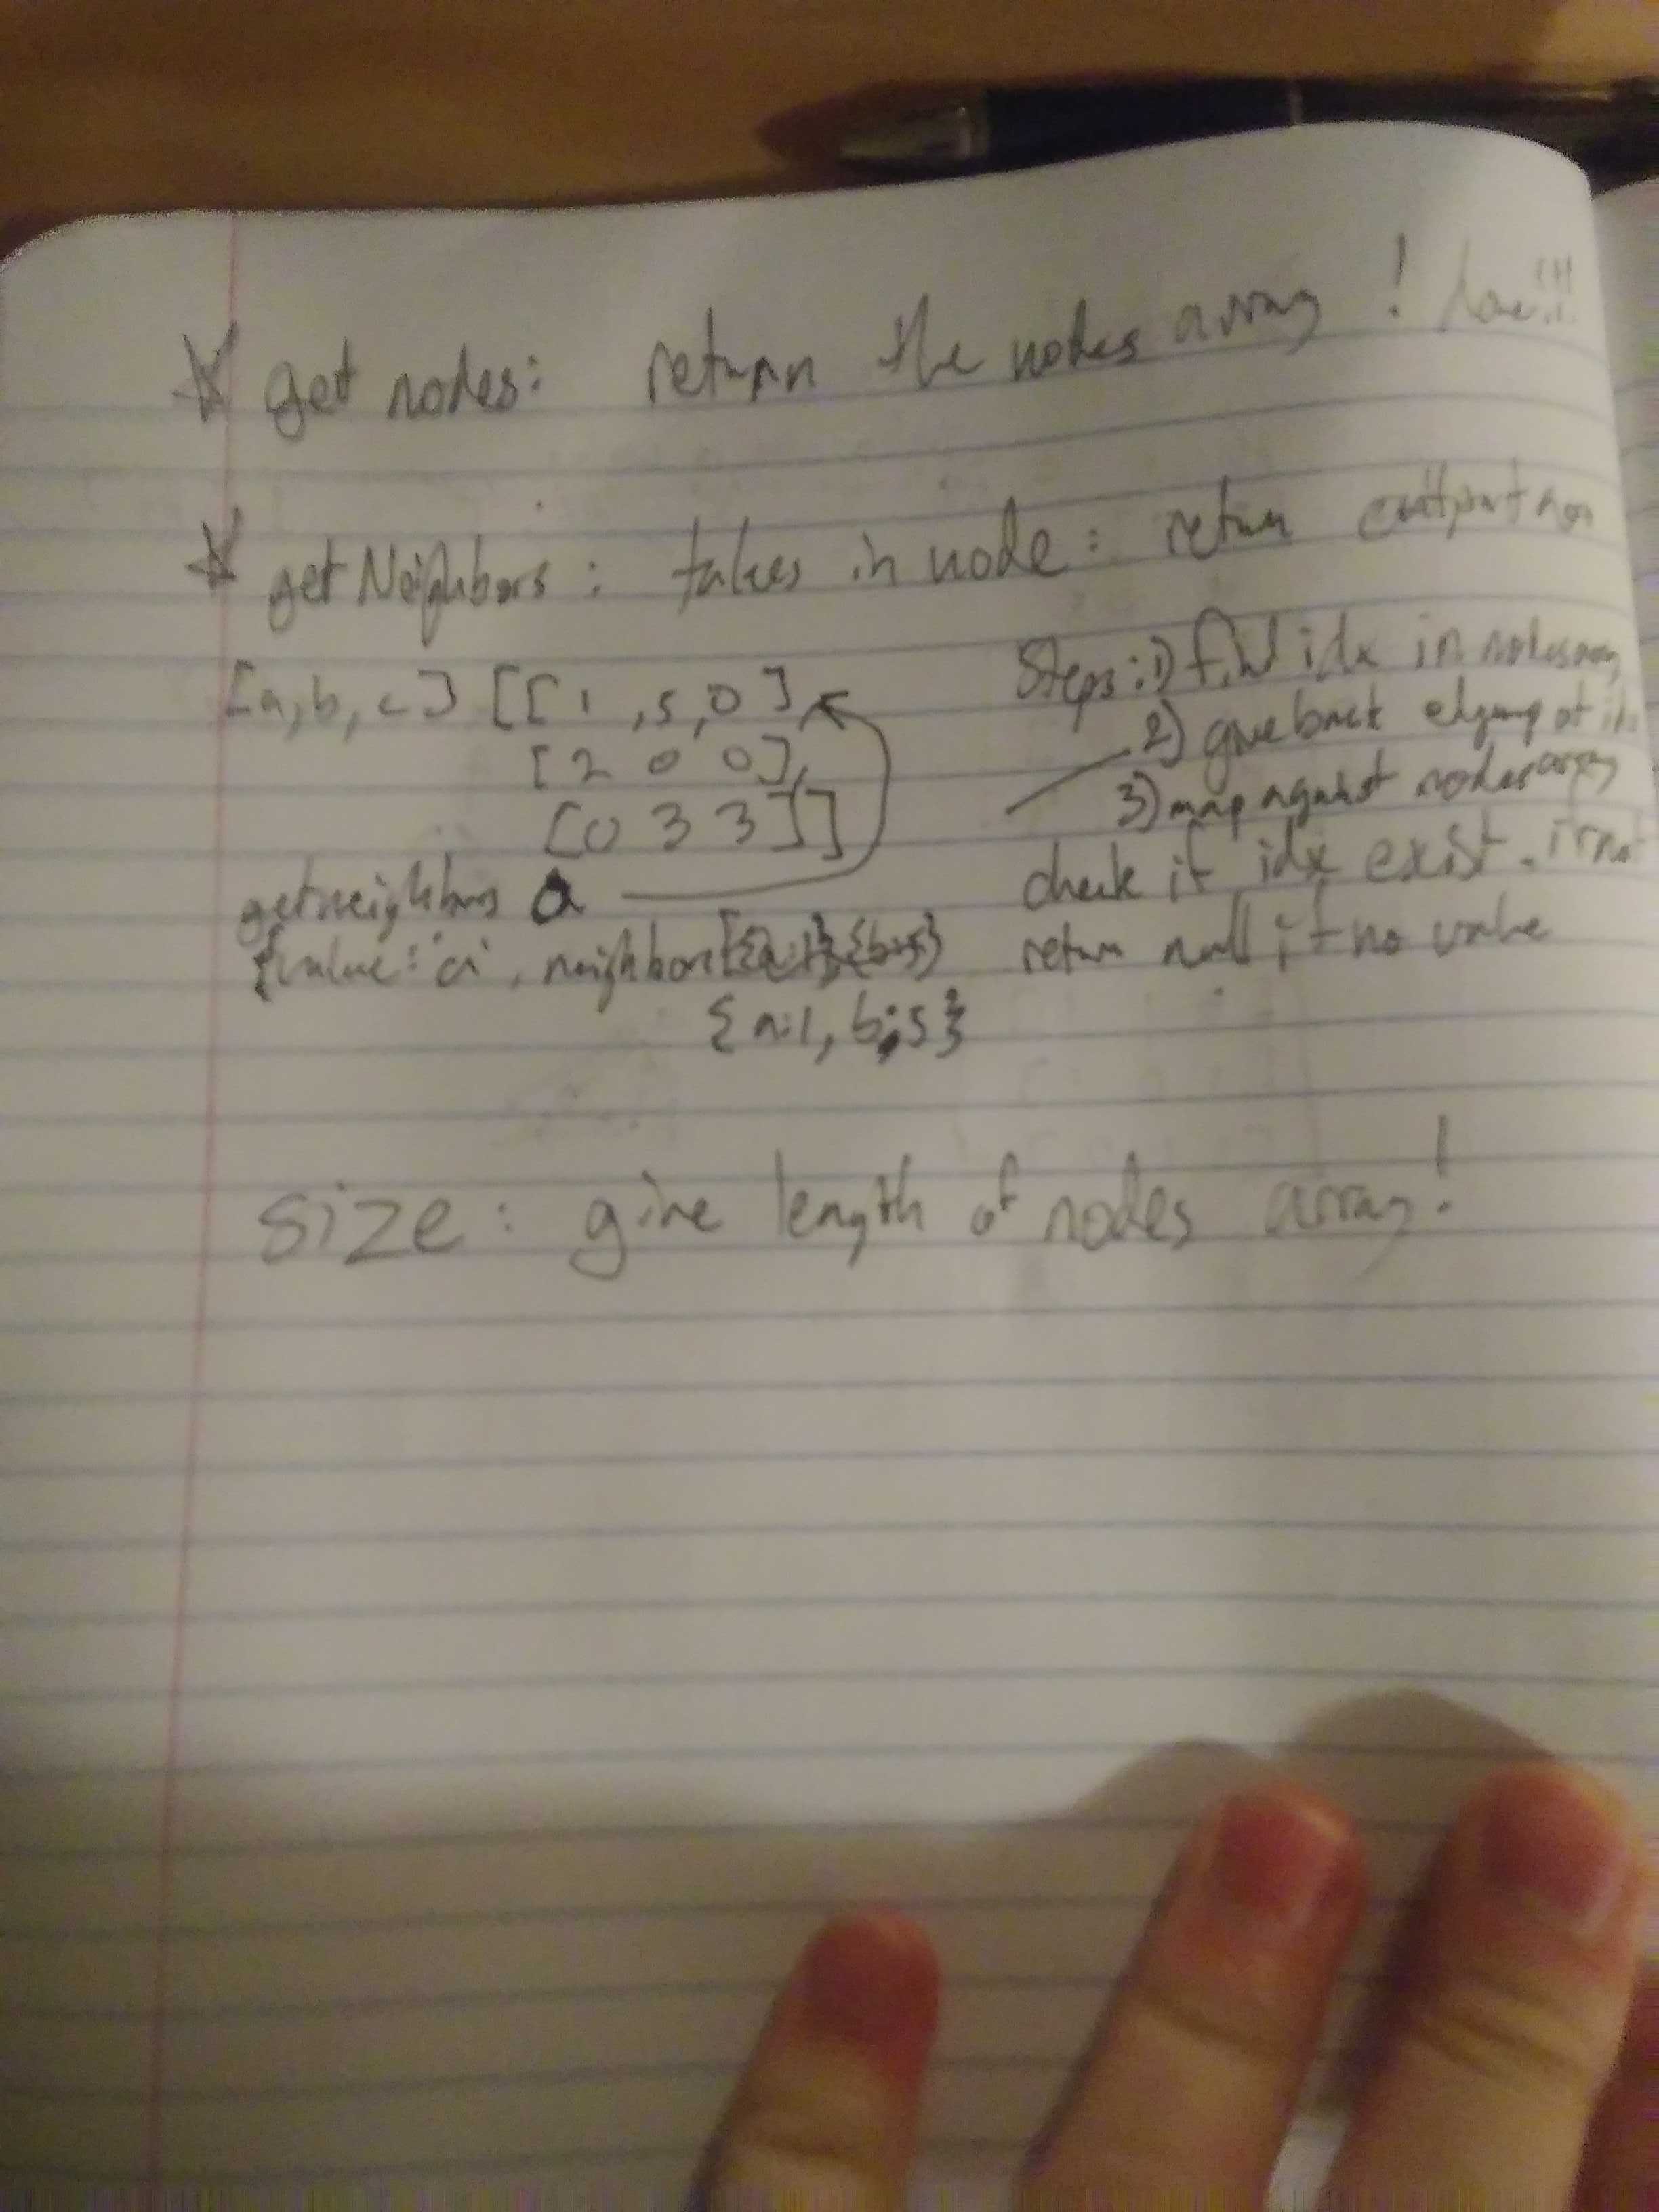 ☆ get nodes: return the nodes array !
☆ getNeighbors: takes in node: return
[a,b,c] [[1,5,0],
[2 0 0],
[0 3 3]]
getneighbors a
{value:'a', neighbors[{a:1},{b:5}
{a:1, b:5}
Steps: 1) find idx in nodes array
2) give back at idx
3) map against nodes array
check if idx exist. if not
return null if no value
size: give length of nodes array!